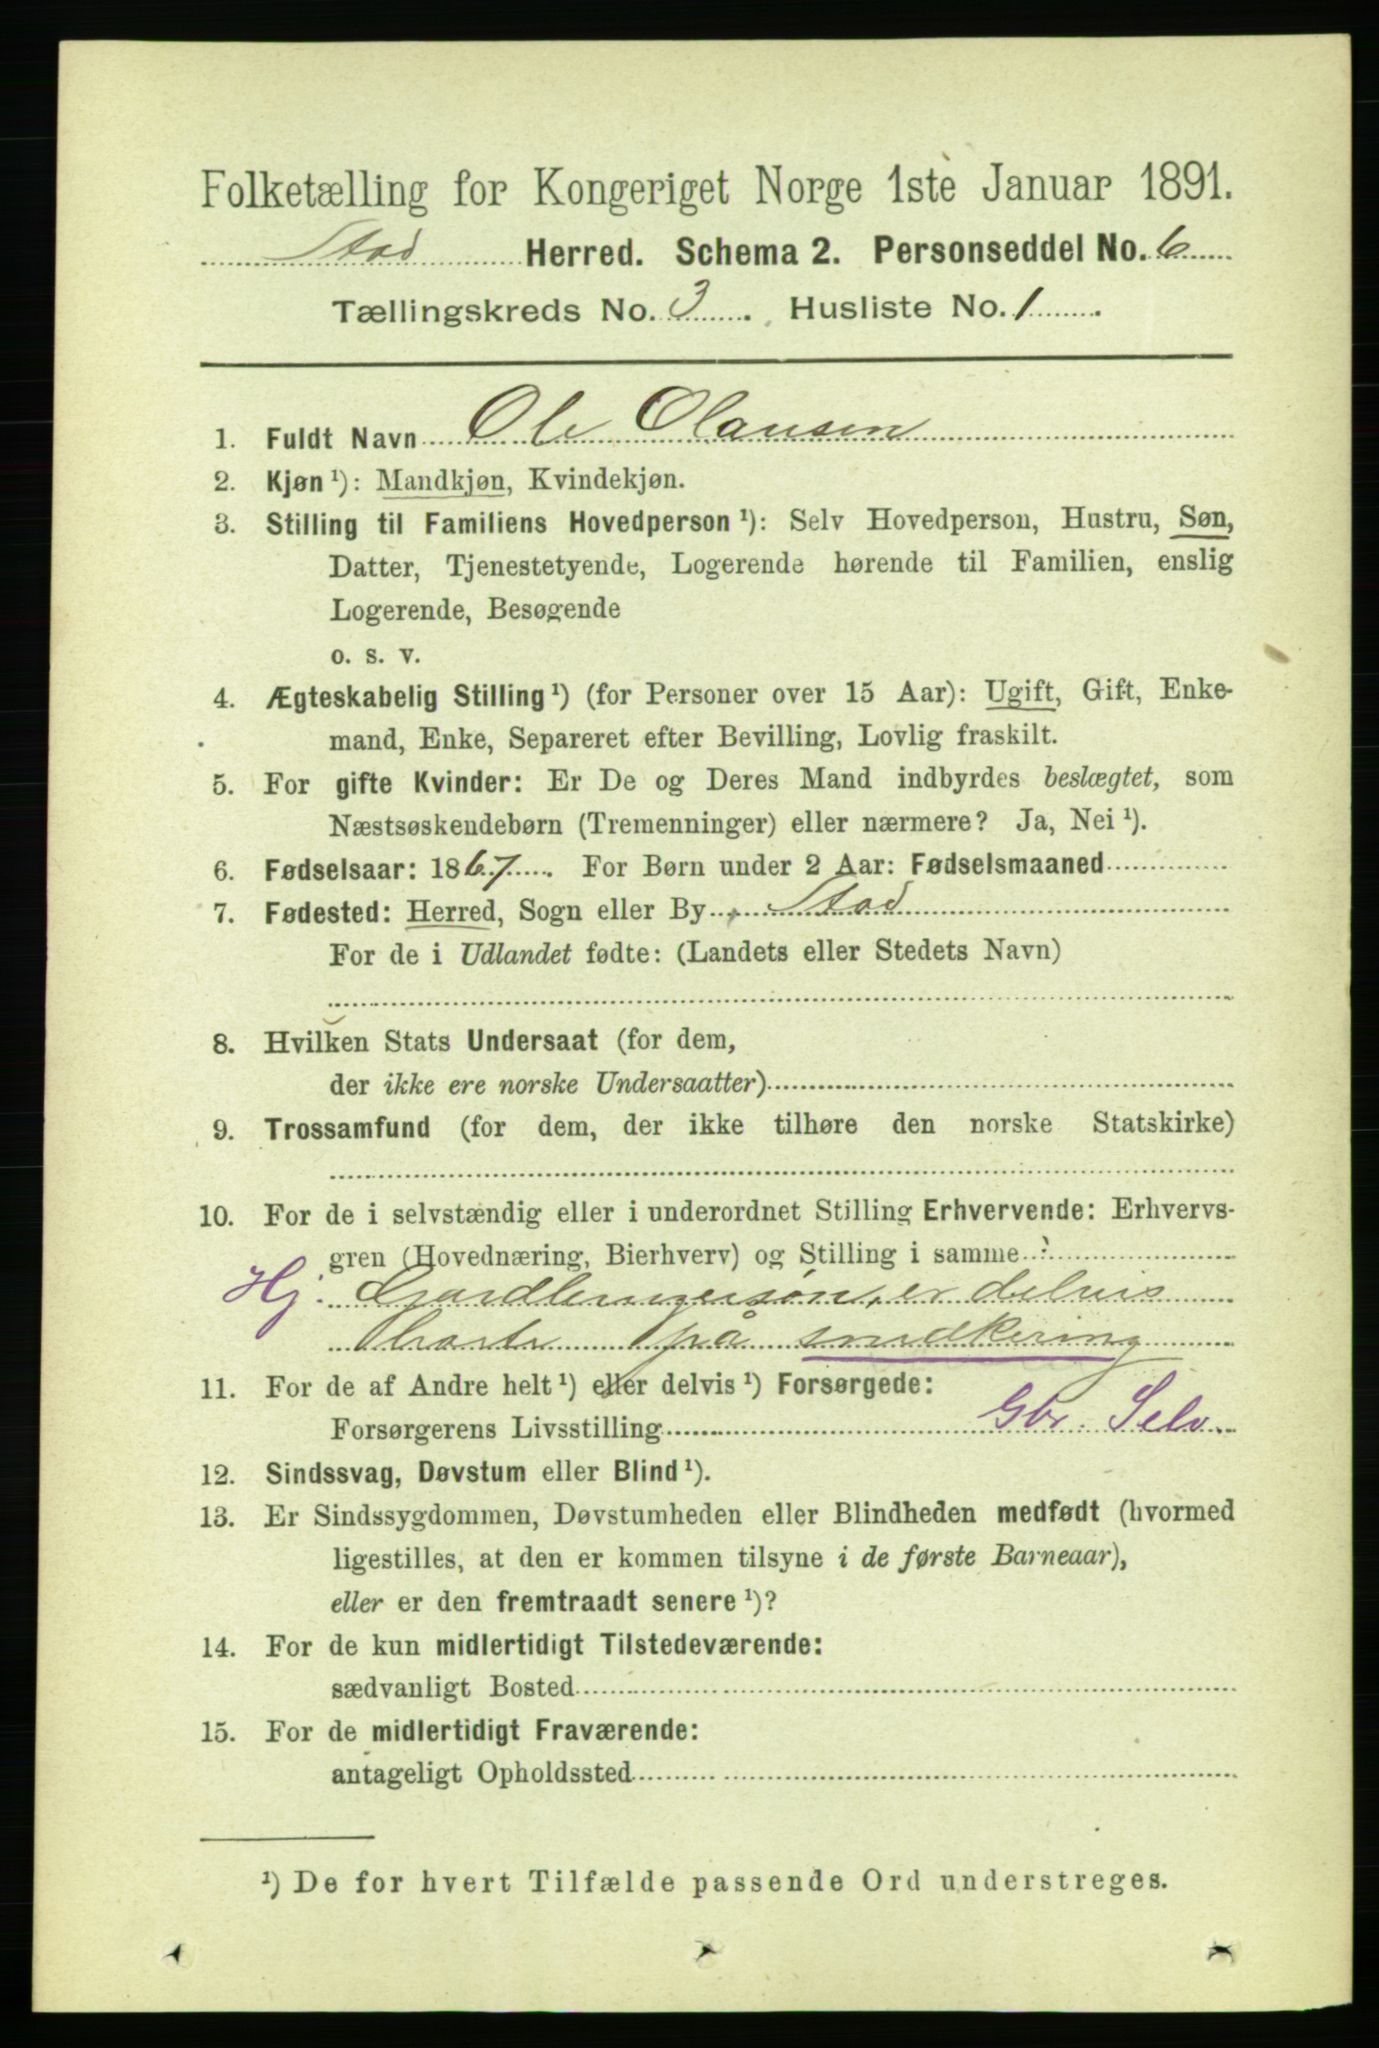 Folketælling for Kongeriget Norge 1ste Januar 1891.
Stod Herred. Schema 2. Personseddel No. 6
Tællingskreds No. 3. Husliste No. 1.
1. Fuldt Navn Ole Olausen
2. Kjøn ¹): Mandkjøn, Kvindekjøn.
3. Stilling til Familiens Hovedperson ¹): Selv Hovedperson, Hustru, Søn,
Datter, Tjenestetyende, Logerende hørende til Familien, enslig
Logerende, Besøgende
o. s. v.
4. Ægteskabelig Stilling ¹) (for Personer over 15 Aar): Ugift, Gift, Enke-
mand, Enke, Separeret efter Bevilling, Lovlig fraskilt.
5. For gifte Kvinder: Er De og Deres Mand indbyrdes beslægtet, som
Næstsøskendebørn (Tremenninger) eller nærmere? Ja, Nei ¹).
6. Fødselsaar: 1867. For Børn under 2 Aar: Fødselsmaaned
7. Fødested: Herred, Sogn eller By Stod
For de i Udlandet fødte: (Landets eller Stedets Navn)
8. Hvilken Stats Undersaat (for dem,
der ikke ere norske Undersaatter)
9. Trossamfund (for dem, der ikke tilhøre den norske Statskirke)
10. For de i selvstændig eller i underordnet Stilling Erhvervende: Erhvervs-
gren (Hovednæring, Bierhverv) og Stilling i samme :
Hj. er delvis
på snedkering
11. For de af Andre helt ¹) eller delvis ¹) Forsørgede:
Forsørgerens Livsstilling Gbr. Selv.
12. Sindssvag, Døvstum eller Blind ¹).
13. Er Sindssygdommen, Døvstumheden eller Blindheden medfødt (hvormed
ligestilles, at den er kommen tilsyne i de første Barneaar),
eller er den fremtraadt senere ¹)?
14. For de kun midlertidigt Tilstedeværende:
sædvanligt Bosted
15. For de midlertidigt Fraværende:
antageligt Opholdssted
¹) De for hvert Tilfælde passende Ord understreges.